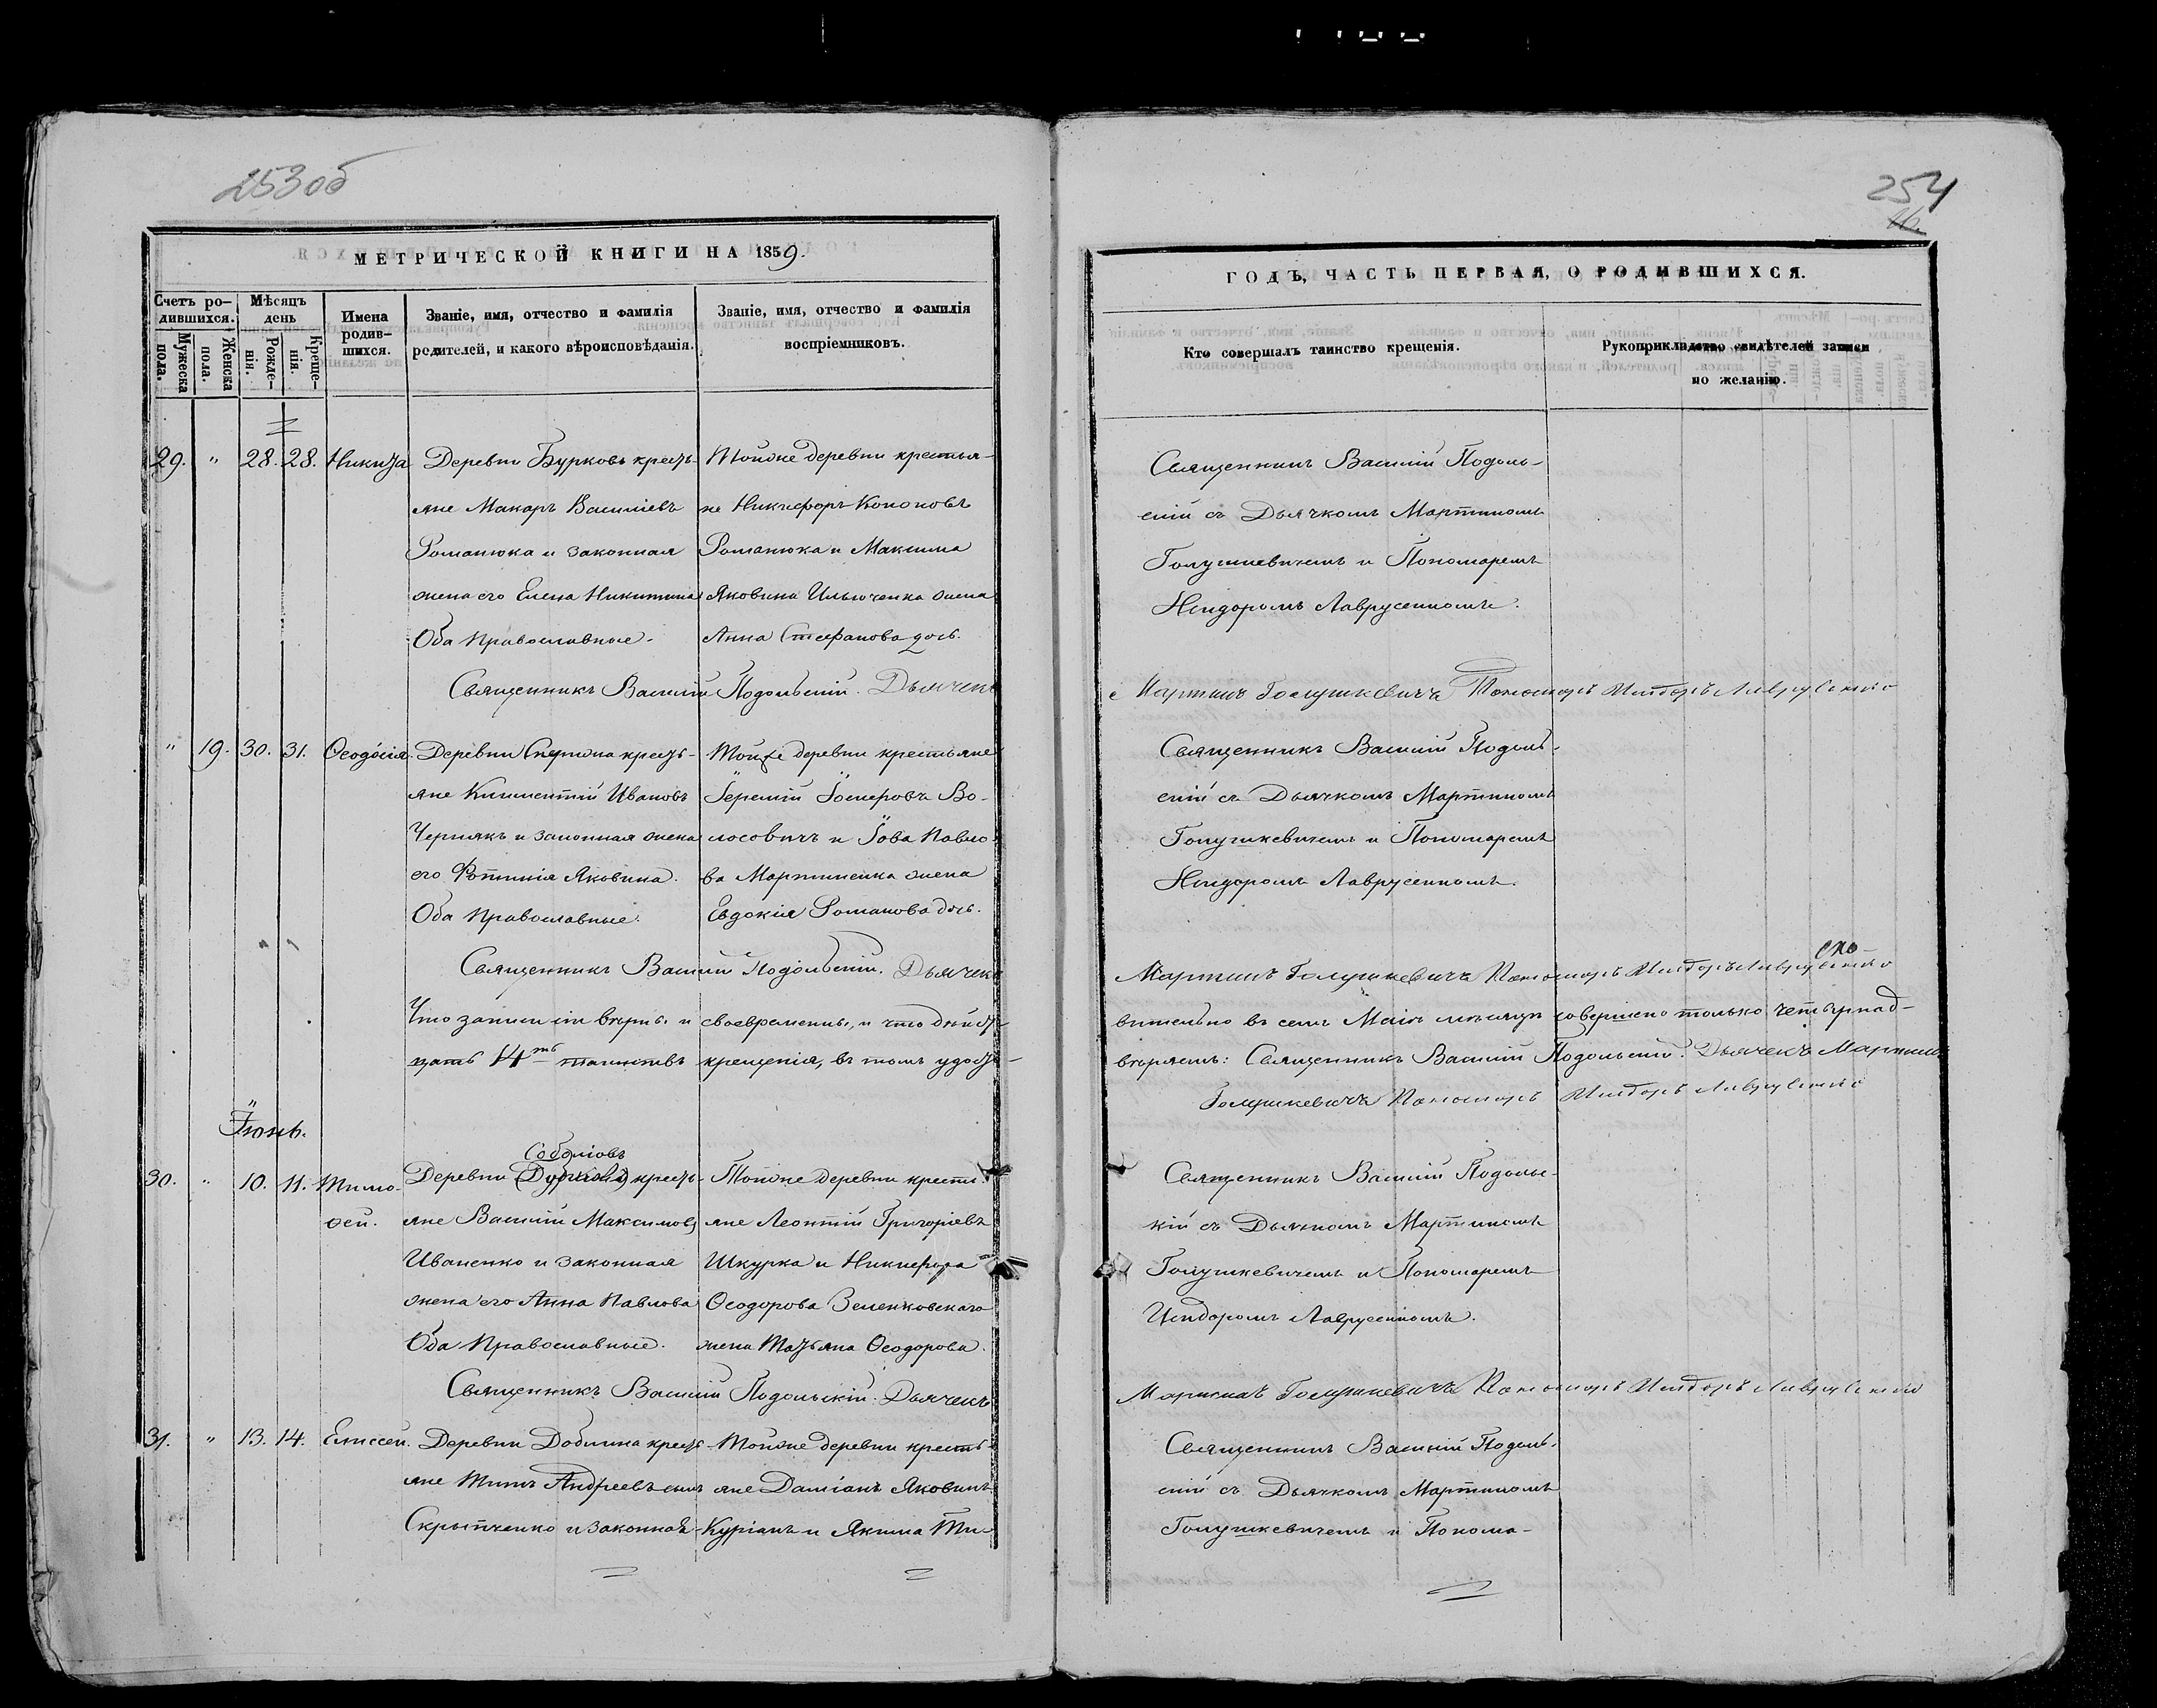 253об
МЕТРИЧЕСКОЙ КНИГИ НА 1859.
Счетъ ро-
дившихся.
Мужеска
пола.
Женска
пола.
Мѣсяцъ
день
Рожде-
нія.
Креще-
нія.
Имена
родив-
шихся.
Званіе, имя, отчество и фамилія
родителей, и какого вѣроисповѣданія.
Званіе, имя, отчество и фамилія
воспріемниковъ.
29. " 28. 28. Никита
Деревни Бурковъ кресть-
яне Макаръ Василіевъ
Романюка и законная
жена его Елена Никитина
Оба Православные.
Тойже деревни крестья-
не Никифоръ Кононовъ
Романюка и Максима
Яковина Ильюченка жена
Анна Стефанова дочь.
Священникъ Василій Подольскій. Дьячекъ
" 19. 30. 31. Ѳеодосія.
Деревни кресть-
яне Климентій Ивановъ
Чернякъ и законная жена
его Фотинія Яковина.
Оба Православные.
Тойже деревни крестьяне
Іеремій Во-
лосовичъ и Іова Павло-
ва Мартиненка жена
Евдокія Романова дочь.
Священникъ Василій Подольскій. Дьячекъ
Что записи сіи вѣрны и своевременны, и что дѣйст-
цать 14ть таинствъ крещенія, въ томъ удосто-
Іюнь.
30. " 10. 11. Тимо-
ѳей.
Соболіовъ
Деревни кресть-
яне Василій Максимовъ
Иваненко и законная
жена его Анна Павлова
Оба Православные.
Тойже деревни кресть-
яне Леонтій Григоріевъ
Шкурка и Никифора
Ѳеодорова Зеленковскаго
жена Татьяна Ѳеодорова.
Священникъ Василій Подольскій. Дьячекъ
31. " 13. 14. Елисей.
Деревни Доблина кресть-
яне Титъ Андреевъ сынъ
Скрыпченко и законная
Тойже деревни кресть-
яне Даміанъ Яковинъ
Куріанъ и Якима Ти-
254
16.
ГОДЪ, ЧАСТЬ ПЕРВАЯ, О РОДИВШИХСЯ.
Кто совершалъ таинство крещенія.
Рукоприкладство свидѣтелей записи
по желанію.
Священникъ Василій Подоль-
скій съ Дьячкомъ Мартиномъ
Голушкевичемъ и Пономаремъ
Исидоромъ Лаврусенкомъ.
Мартинъ Голушкевичъ Пономаръ Исидоръ Лаврусенко
Священникъ Василій Подоль-
скій съ Дьячкомъ Мартиномъ
Голушкевичемъ и Пономаремъ
Исидоромъ Лаврусенкомъ.
Мартинъ Голушкевичъ Пономаръ Исидоръ Лаврусенко
вительно въ семъ Маіѣ мѣсяцѣ совершено только четырнад-
вѣряемъ: Священникъ Василій Подольскій. Дьячекъ Мартинъ
Голушкевичъ Пономаръ Исидоръ Лаврусенко
Священникъ Василій Подольс-
кій съ Дьячкомъ Мартиномъ
Голушкевичемъ и Пономаремъ
Исидоромъ Лаврусенкомъ.
Мартинъ Голушкевичъ Пономаръ Исидоръ Лаврусенко
Священникъ Василій Подоль-
скій съ Дьячкомъ Мартиномъ
Голушкевичемъ и Понома-